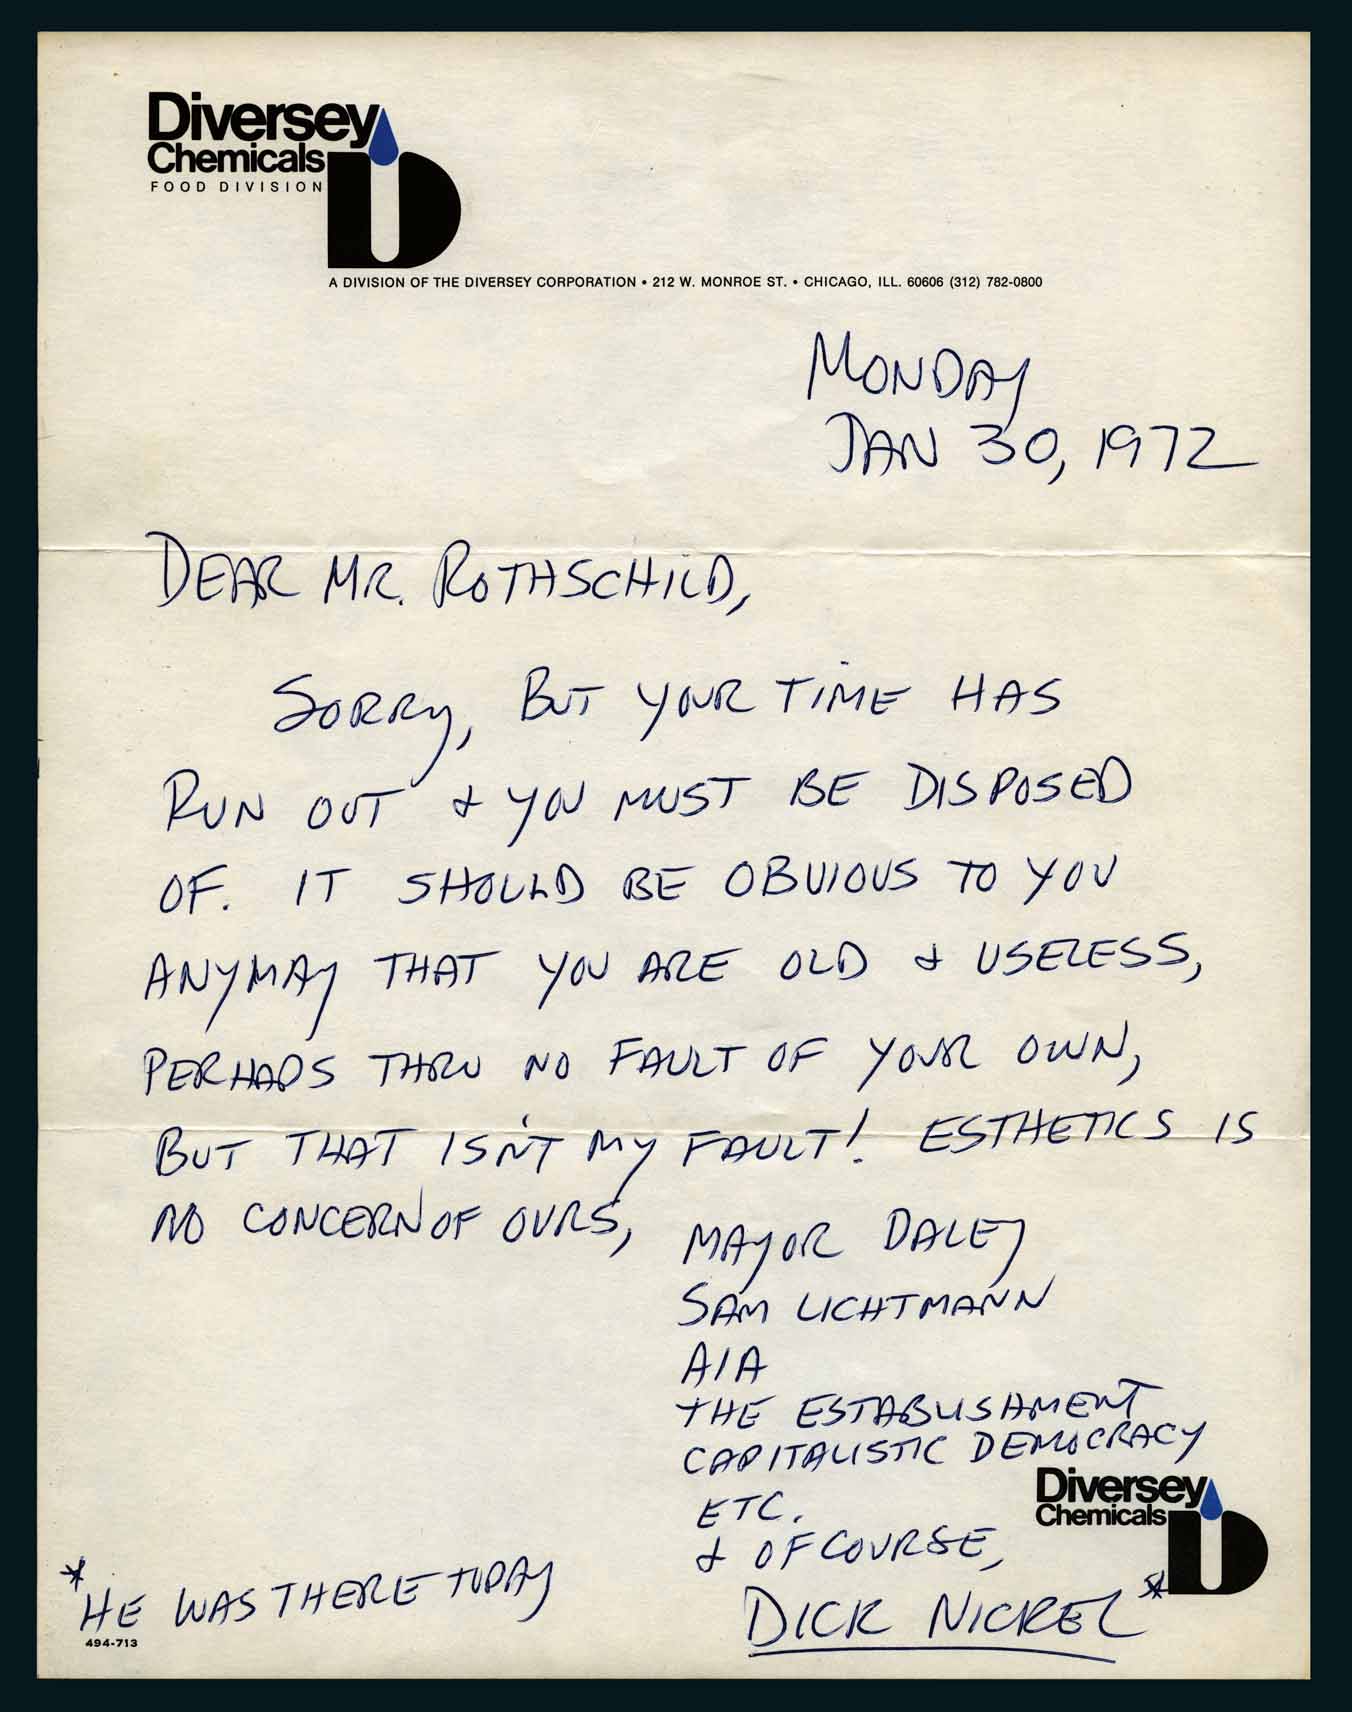 Diversey
Chemicals
FOOD DIVISION
A DIVISION OF THE DIVERSEY CORPORATION • 212 W. MONROE ST. • CHICAGO, ILL. 60606 (312) 782-0800
MONDAY
JAN 30, 1972
DEAR MR. ROTHSCHILD,
SORRY, BUT YOUR TIME HAS
RUN OUT & YOU MUST BE DISPOSED
OF. IT SHOULD BE OBVIOUS TO YOU
ANYMAY THAT YOU ARE OLD & USELESS,
PERHAPS THRU NO FAULT OF YOUR OWN,
BUT THAT ISN'T MY FAULT! ESTHETICS IS
NO CONCERN OF OURS,
MAYOR DALEY
SAM LICHTMANN
AIA
THE ESTABLISHMENT
CAPITALISTIC DEMOCRACY
ETC.
& OF COURSE,
DICK NICKEL*
Diversey
Chemicals
*HE WAS THERE TODAY
494-713